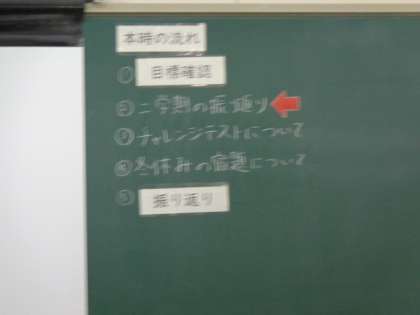 本時の流れ
① 目標確認
② 二学期の振り返り
③ チャレンジテストについて
④ 冬休みの宿題について
⑤ 振り返り